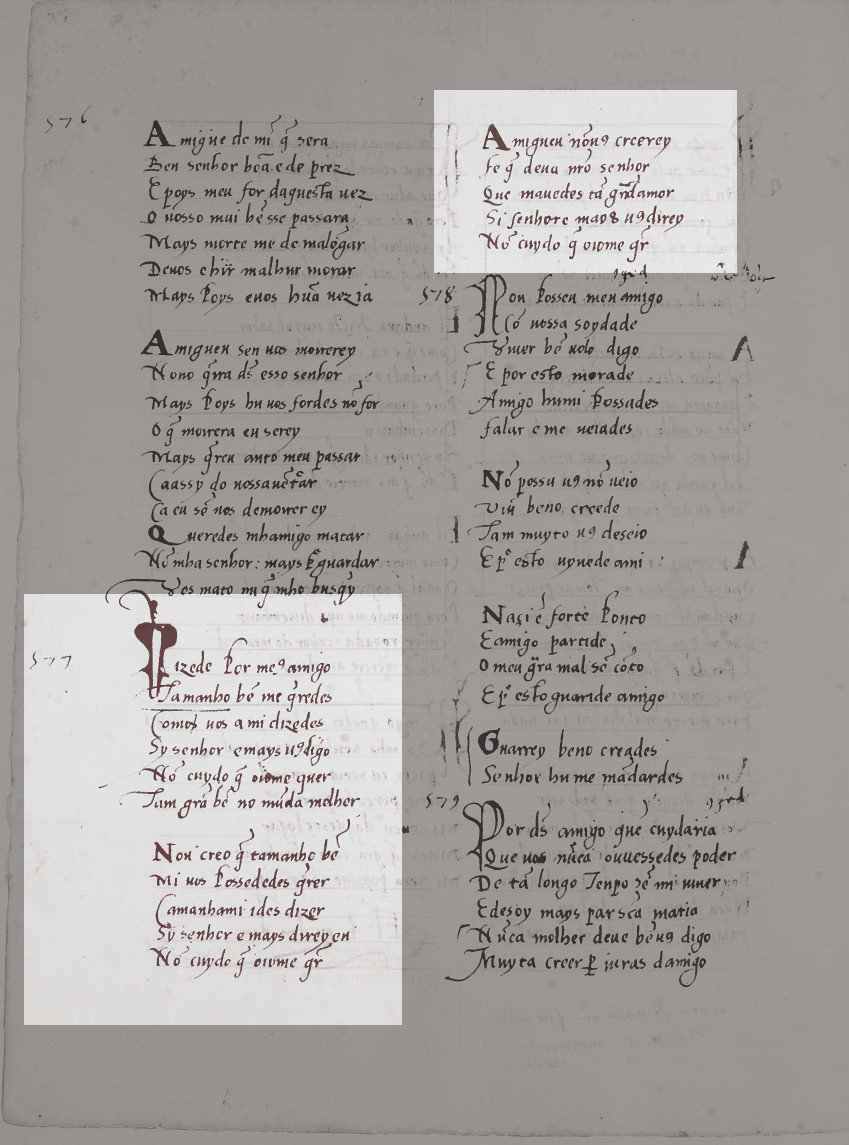 576
Amigue de mi q̄ sera
Ben senhor bōa e de prez
E poys meu for daquesta uez
O uosso mui bē sse passara
Mays morte me de malongar
Deuos e hir malhur morar
Mays poys euos hūa uez ia
Amigueu sen uos morrerey
Nono q̄rra ds̄ esso senhor
Mays poys hu uos fordes nō for
O q̄ morrera eu serey
Mays q̄reu anto meu passar
Ca assy do uossauētar
Ca eu sē uos demorrer ey
Queredes mhamigo matar
Nō mha senhor: mays p̄ guardar
Uos mato mi q̄ mho busq̄y
577
Dizede por me9 amigo
Tamanho bē me q̄redes
Como uos a mi dizedes
Sy senhor e mays u9 digo
Nō cuydo q̄ oiome quer
Tam grā bē no mūda molher
Non creo q̄ tamanho bē
Mi uos possededes q̄rer
Camanhami ides dizer
Sy senhor e mays direy en
Nō cuydo q̄ oiome q̄r
Amigueu nōu9 creerey
Fe q̄ deua nrō senhor
Que mauedes tā grādamor
Si senhore mays u9 direy
Nō cuydo q̄ oiome q̄r
578
Non posseu meu amigo
Cō uossa soydade
Uiuer bē uolo digo
E por esto morade
Amigo humi possades
falar e me ueiades
Nō possu u9 nō ueio
Uiu᷈ beno creede
Tam muyto u9 deseio
E p̄ esto uyuede ami
Naçi ē forte ponto
E amigo partide
O meu g̃ra mal sē cōto
E p̄ esto guaride amigo
Guarrey beno creades
Senhor hu me mādardes
579
Por ds̄ amigo que cuydaria
Que uos nūca ouuessedes poder
De tā longo tenpo sē mi uiuer
E desoy mays par scā maria
Nūca molher deue bē u9 digo
Muyta creer p̄ iuras damigo